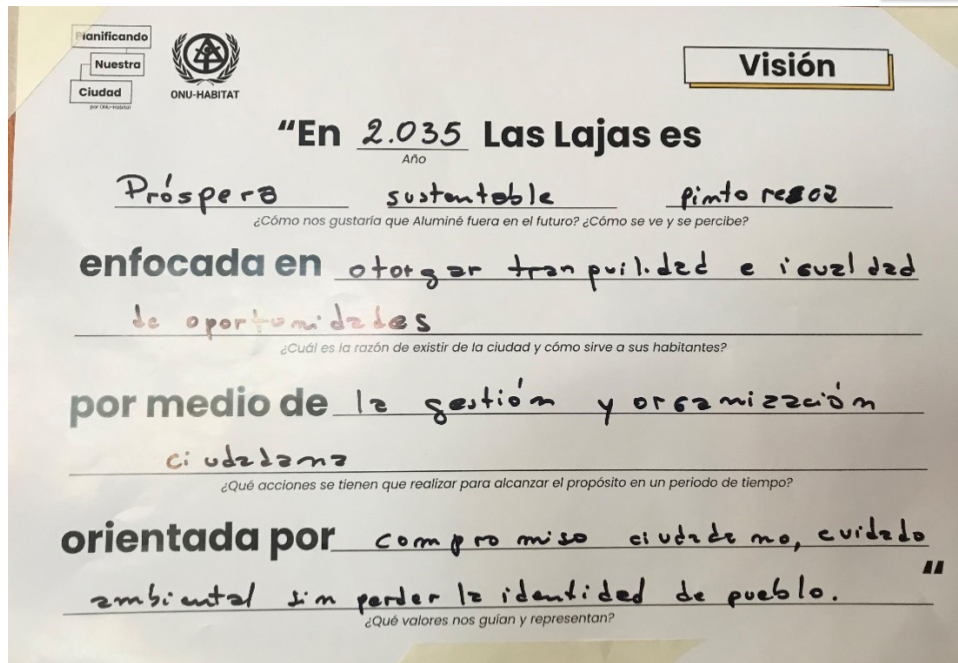 Planificando
Nuestra
Ciudad
por ONU-Habitat
ONU-HABITAT
Visión
"En 2.035 Las Lajas es
Año
Próspera sustentable pintoresca
¿Cómo nos gustaría que Aluminé fuera en el futuro? ¿Cómo se ve y se percibe?
enfocada en otorgar tranquilidad e igualdad
de oportunidades
¿Cuál es la razón de existir de la ciudad y cómo sirve a sus habitantes?
por medio de la gestión y organización
ciudadana
¿Qué acciones se tienen que realizar para alcanzar el propósito en un periodo de tiempo?
orientada por compromiso ciudadano, cuidado
ambiental sin perder la identidad de pueblo. "
¿Qué valores nos guían y representan?